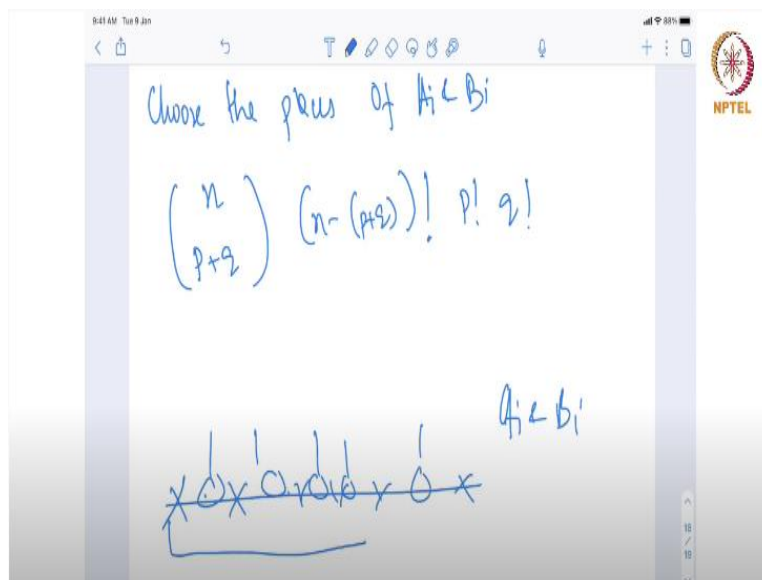 9:41 AM Tue 9 Jan
88%
T
NPTEL
Choose the places Of Ai & Bi
( n p+q ) (n-(p+q))! p! q!
Ai & Bi
X O X O X O O X O X
18
/
19